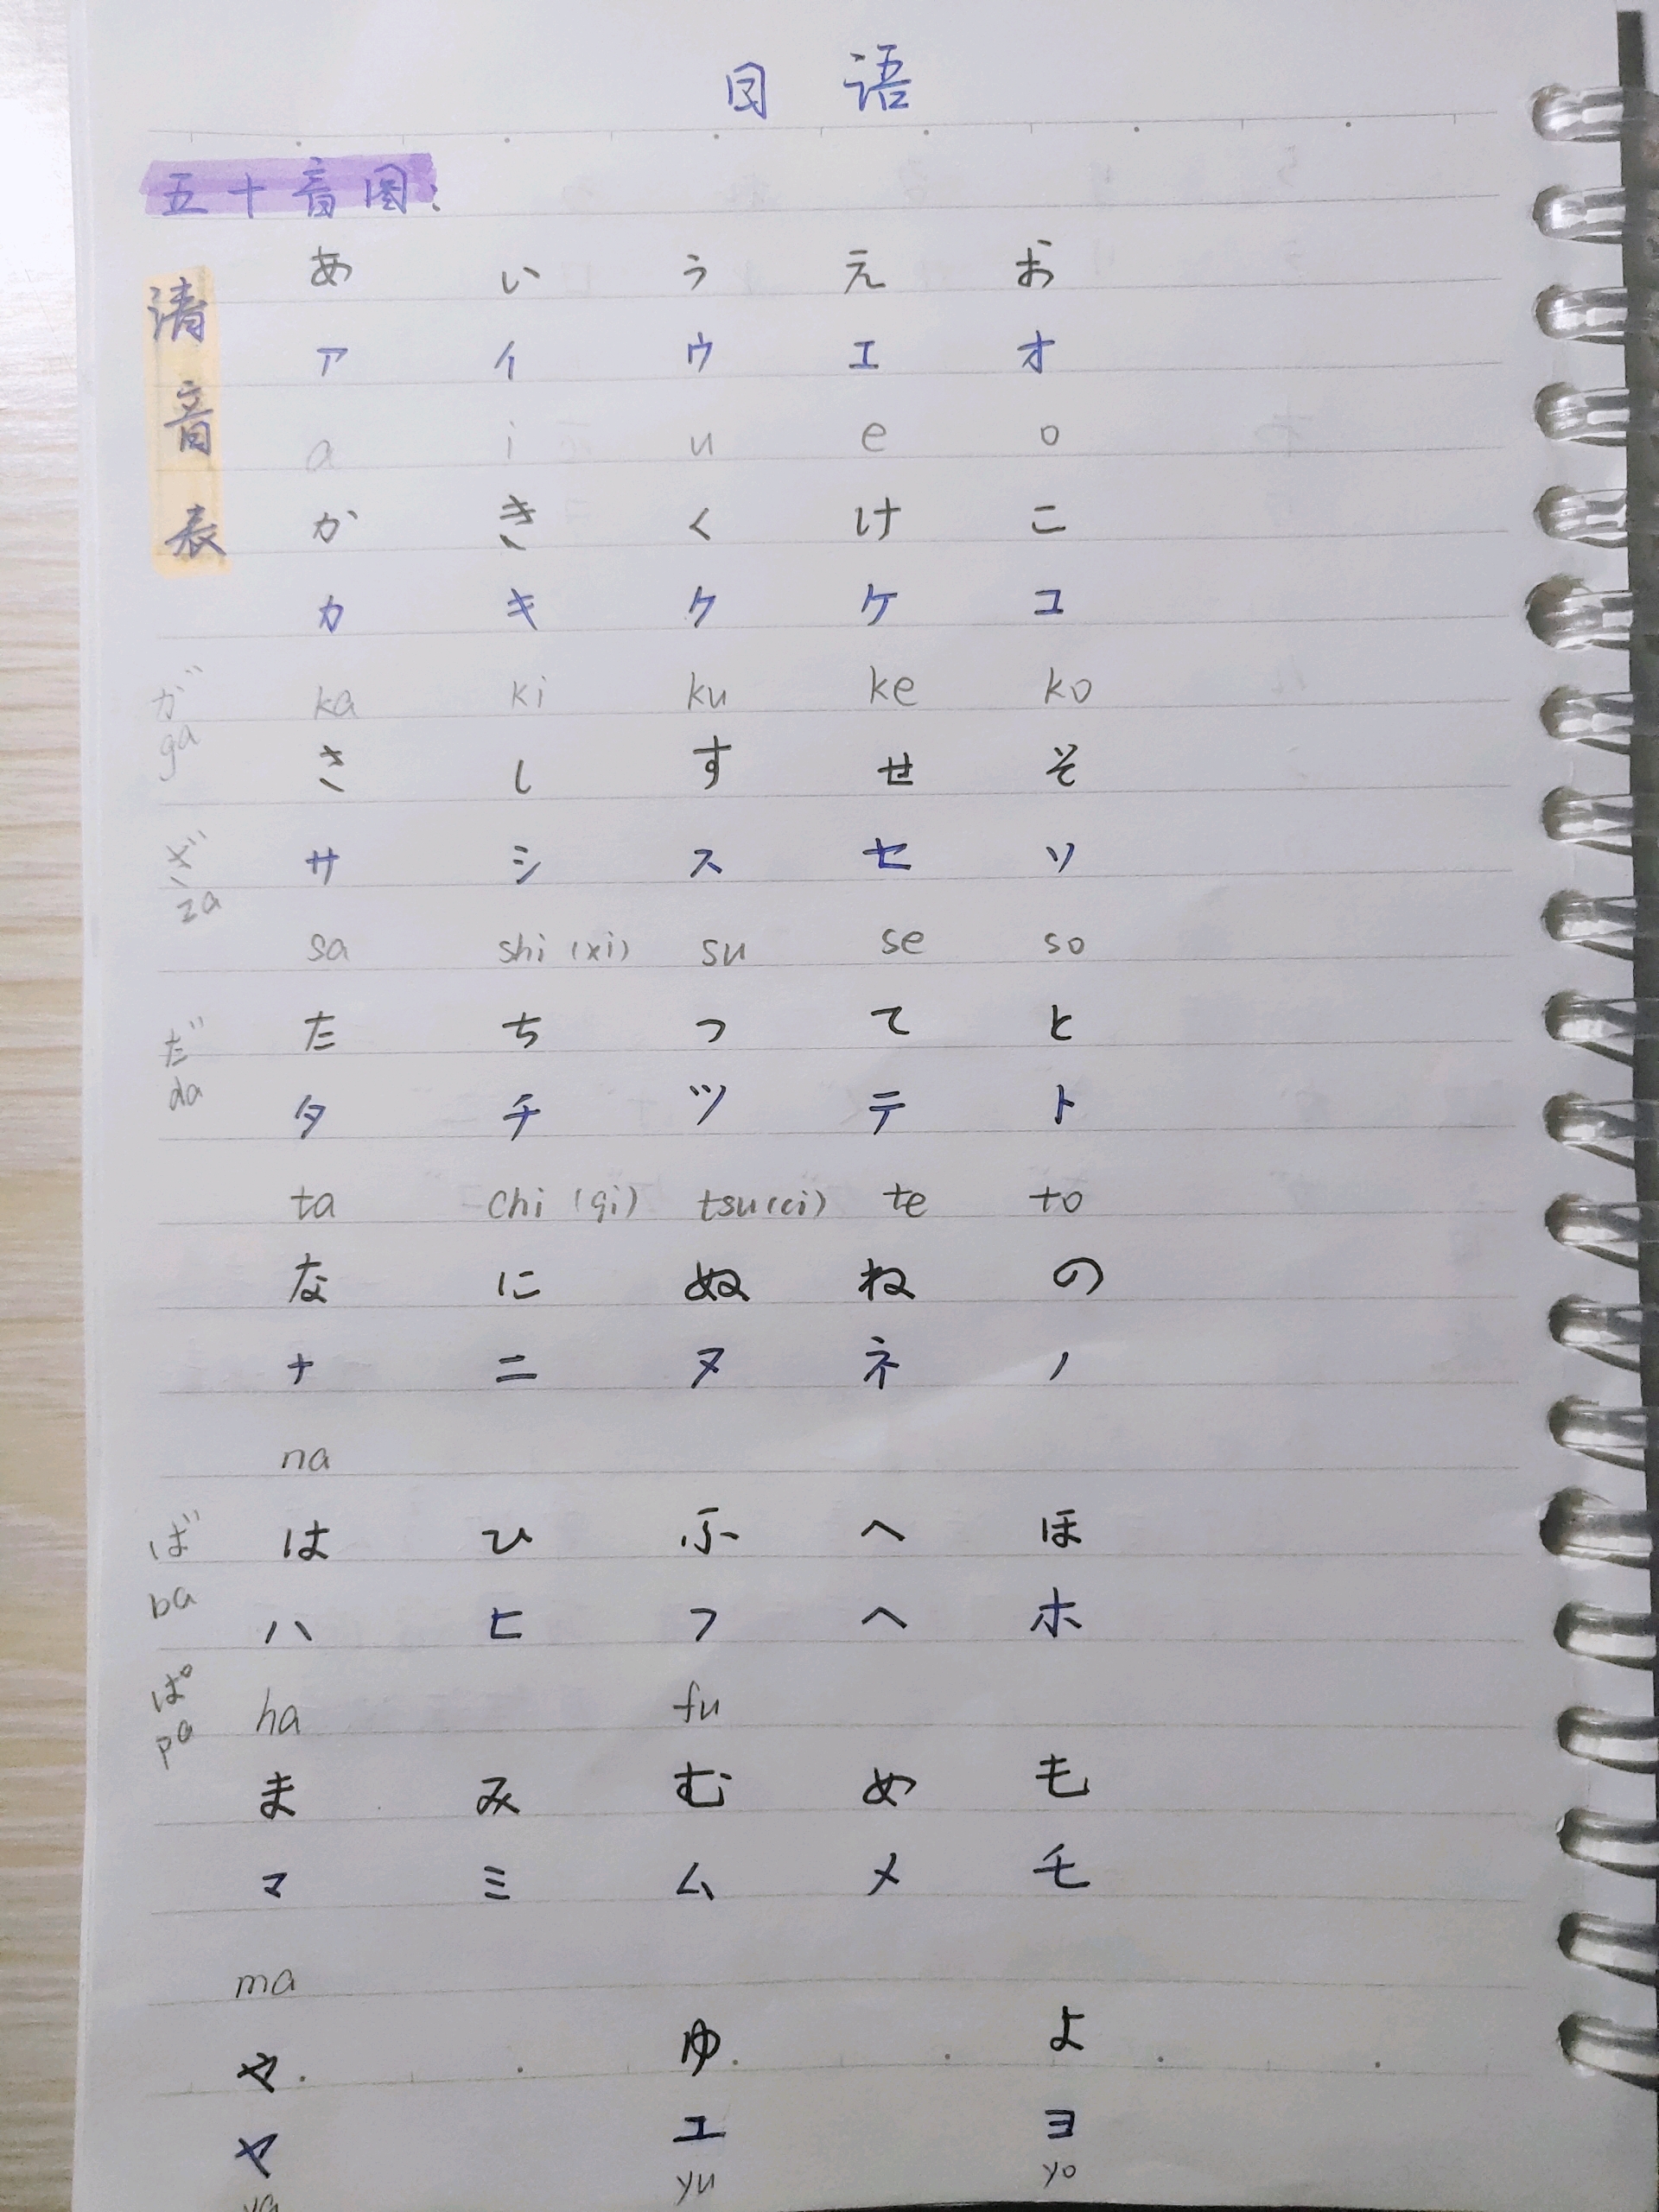 日 语
五十音图:
清音表
あ い う え お
ア イ ウ エ オ
a i u e o
か き く け こ
カ キ ク ケ コ
が ka ki ku ke ko
ga
さ し す せ そ
ざ サ シ ス セ ソ
za
sa shi (xi) su se so
た ち つ て と
だ
da タ チ ツ テ ト
ta chi (qi) tsu(ci) te to
な に ぬ ね の
ナ ニ ヌ ネ ノ
na
ば は ひ ふ へ ほ
ba ハ ヒ フ ヘ ホ
ぱ ha fu
pa
ま み む め も
マ ミ ム メ モ
ma
や ゆ よ
ヤ ユ ヨ
ya yu yo